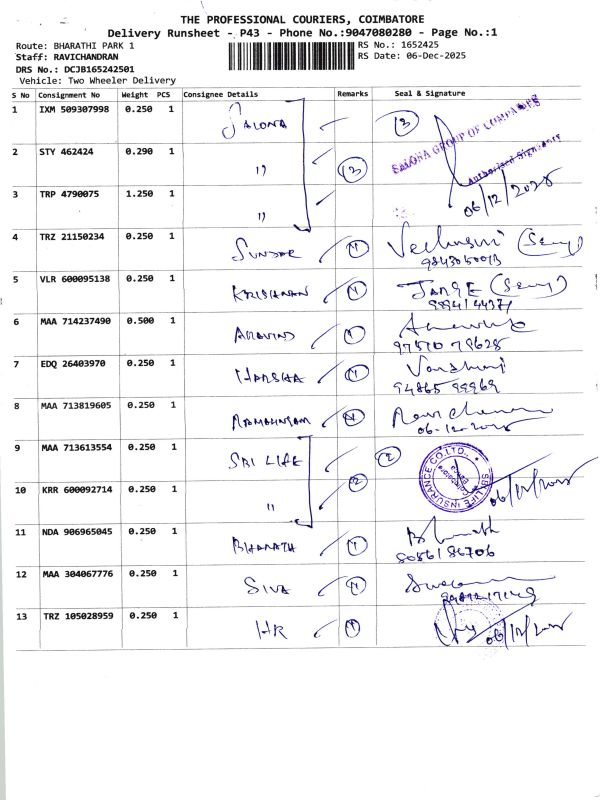 THE PROFESSIONAL COURIERS, COIMBATORE
Delivery Runsheet - P43 - Phone No.:9047080280 - Page No.:1
Route: BHARATHI PARK 1 RS No.: 1652425
Staff: RAVICHANDRAN RS Date: 06-Dec-2025
DRS No.: DCJB165242501
Vehicle: Two Wheeler Delivery
S No Consignment No Weight PCS Consignee Details Remarks Seal & Signature
1 IXM 509307998 0.250 1 SALONA 3 SALONA GROUP OF COMPANIES
Authorised Signatory
2 STY 462424 0.290 1 " 3
06/12/2025
3 TRP 4790075 1.250 1 "
4 TRZ 21150234 0.250 1 SUNDAR
5 VLR 600095138 0.250 1 KRISHANAN
6 MAA 714237490 0.500 1 ARAVIND
97510 79628
7 EDQ 26403970 0.250 1 HARSHA
94865 99969
8 MAA 713819605 0.250 1
06-12-2025
9 MAA 713613554 0.250 1 SBI LIFE 2 SBI LIFE INSURANCE CO. LTD.
10 KRR 600092714 0.250 1 " 2 06/12/2025
11 NDA 906965045 0.250 1 BHARATH Bharath
80561 86706
12 MAA 304067776 0.250 1 SIVA
13 TRZ 105028959 0.250 1 HR 06/12/2025